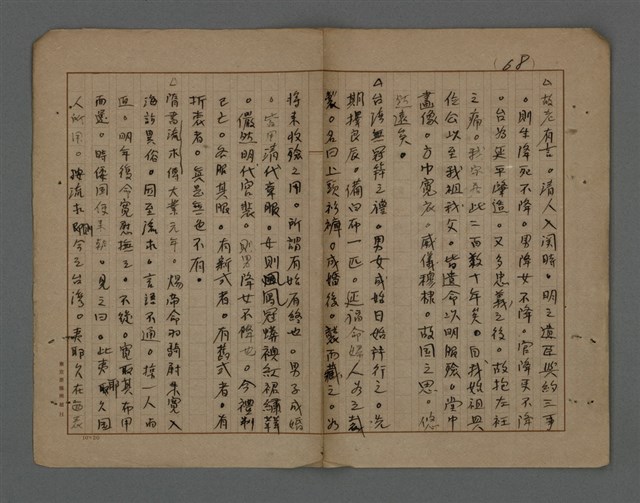 (68)
△故老有言。清人入関時。明之遺臣與約三事
。則生降死不降。男降女不降。官降吏不降
。台為延平締造。又多忠義之後。故抱左衽
之痛。我宗居此二百数十年矣。自我始祖興
位公以至我祖我父。皆遺命以明服殮。堂中
畫像。方巾寬衣。威儀穆棣。故国之思。悠
然遠矣。
△台湾無冠笄之禮。男女成婚日始行之。先
期擇良辰。備白布一匹。延福命婦人為之裁
製。名曰上頭衫褲。成婚後。襲而藏之。以
將来收殮之用。所謂有始有終也。男子成婚
。皆用清代章服。女則鳳冠蟒襖紅裙繡鞋
。儼然明代官裝。則男降女不降也。今禮制
已亡。各服其服。有新式者。有舊式者。有
折衷者。無奇無不有。
△隋書流求傳大業元年。煬帝令羽騎尉朱寬入
海訪異俗。因至流求。言語不通。掠一人而
返。明年復令寬慰撫之。不從。寬取其布甲
而還。時倭国使来朝。見之曰。此夷邪久国
人所用。按流求則今之台湾。夷邪久在海表
10×20